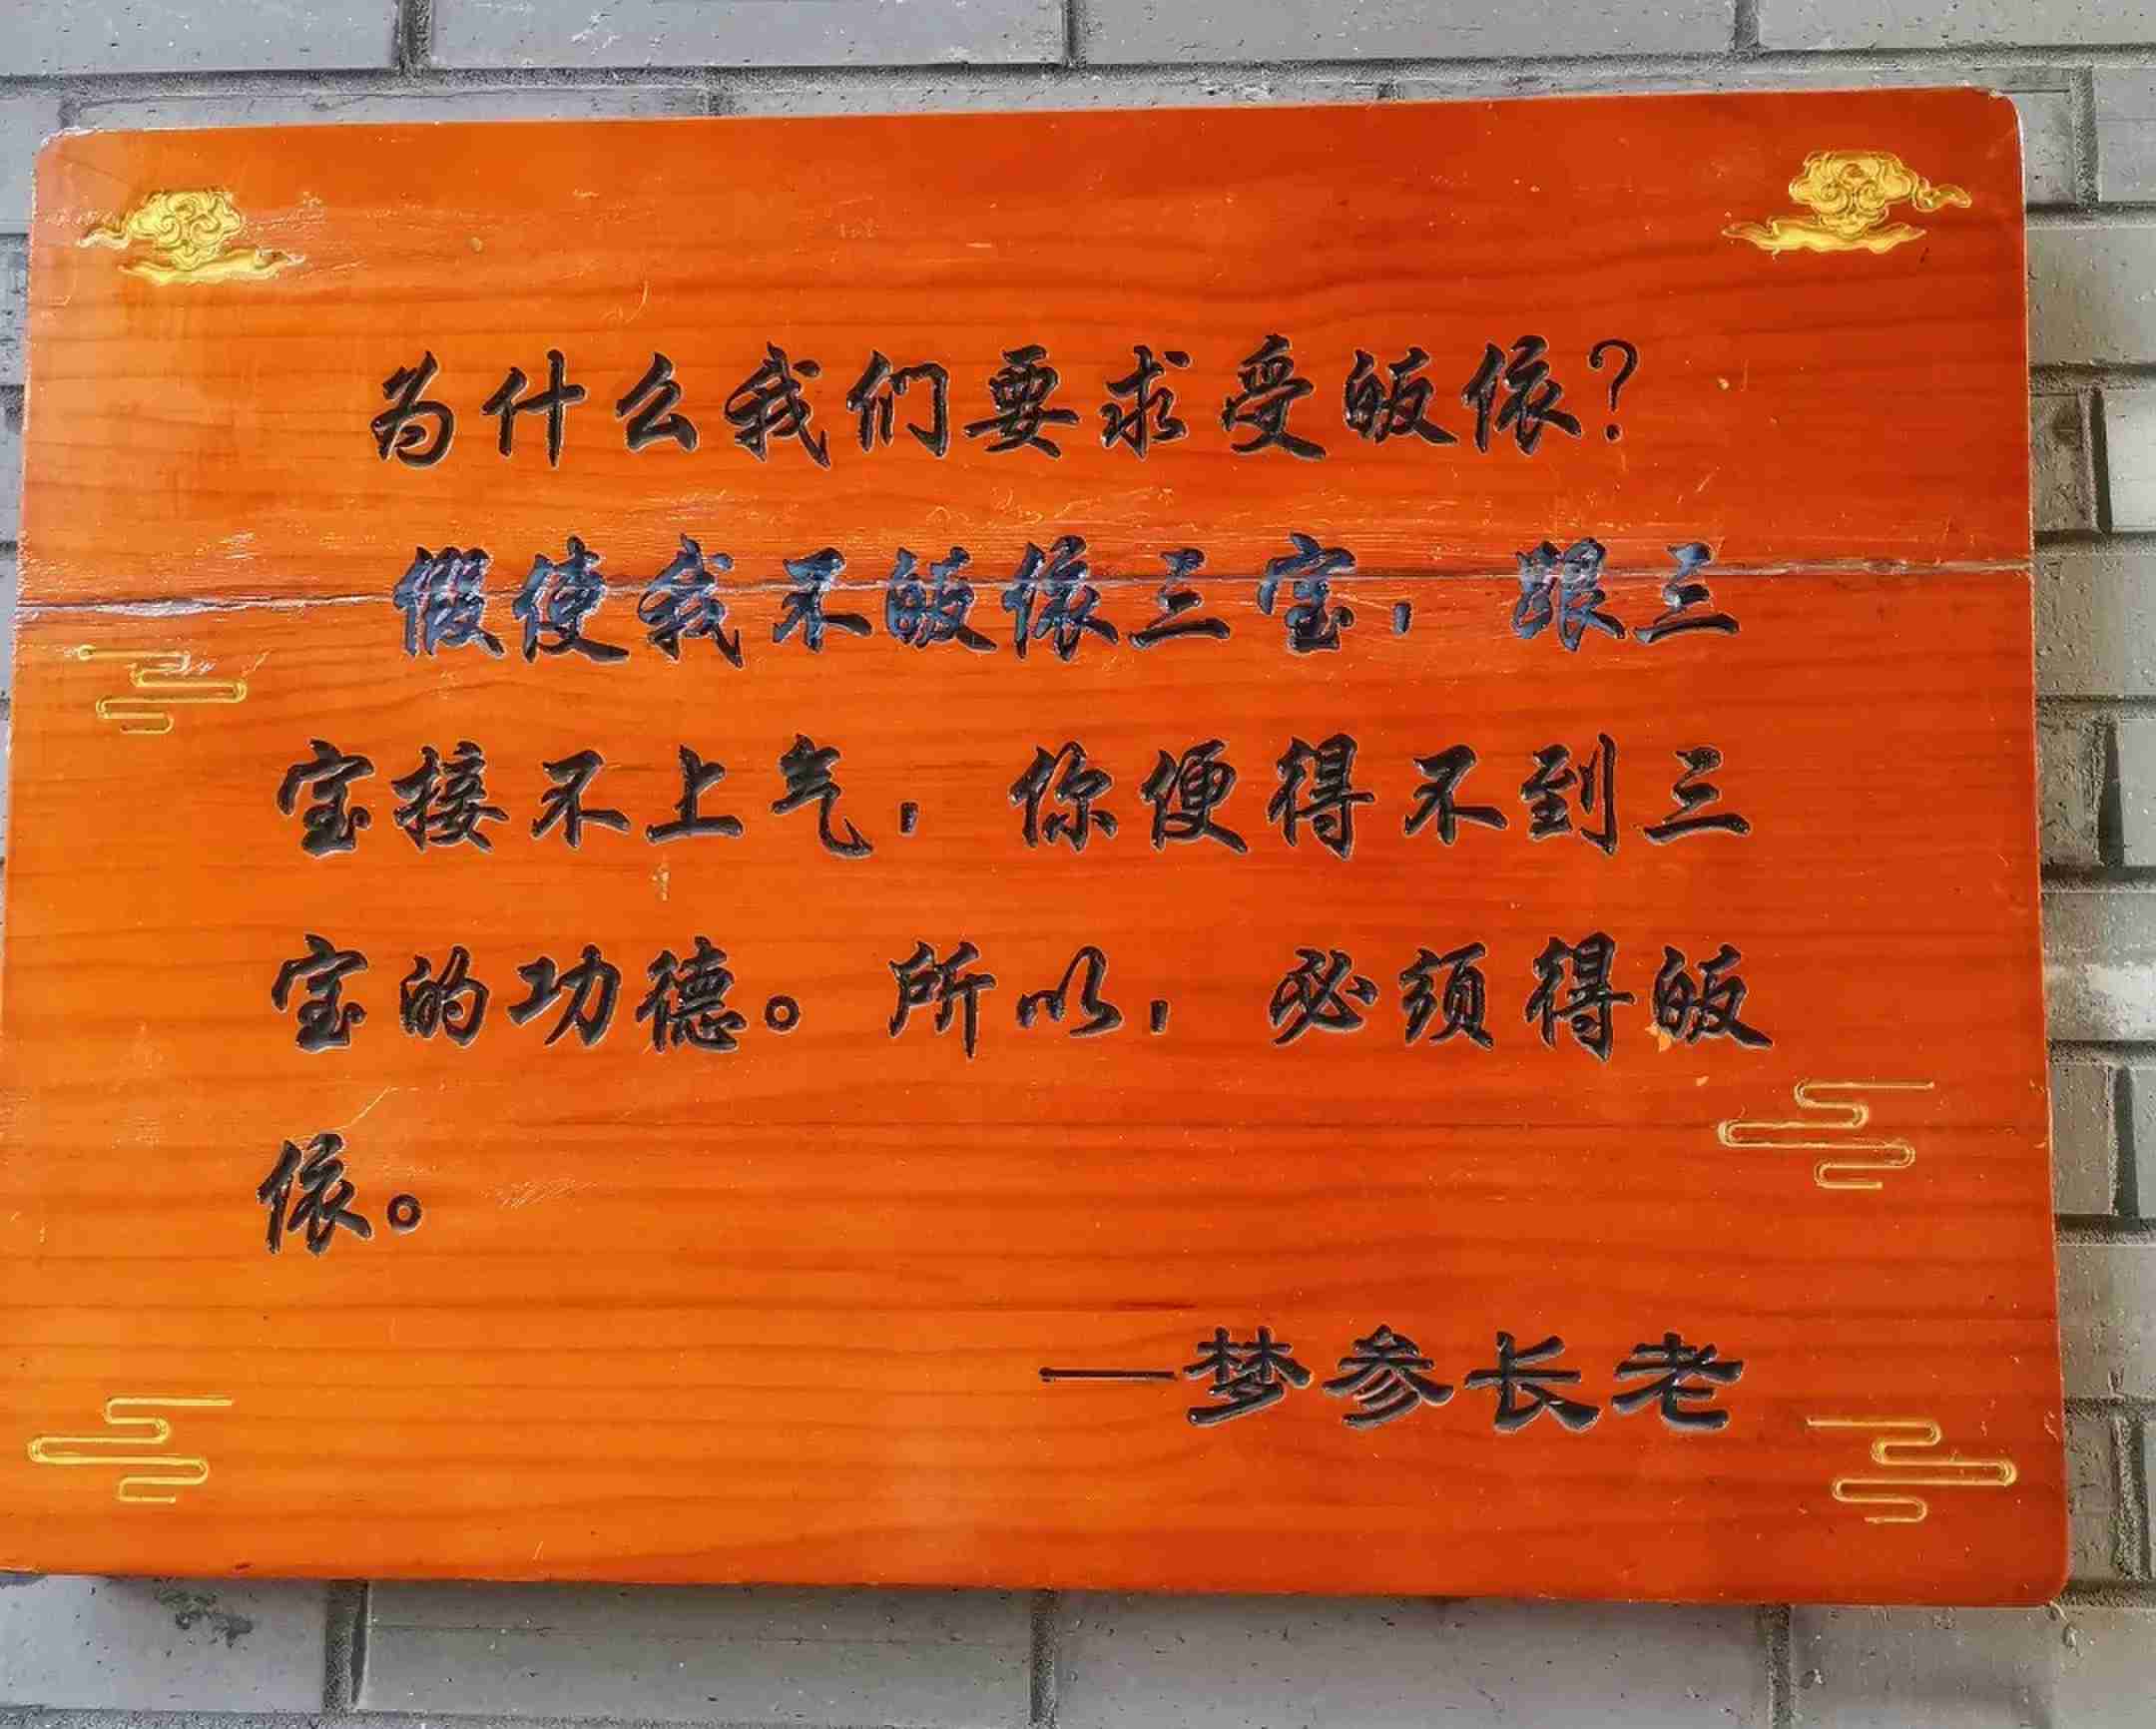 为什么我们要求受皈依？
假使我不皈依三宝，跟三
宝接不上气，你便得不到三
宝的功德。所以，必须得皈
依。
—梦参长老